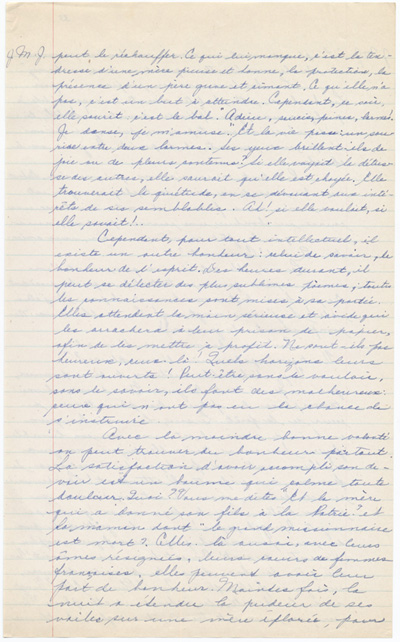 J.M.J. peut le réchauffer. Ce qui lui manque, c'est la ten-
dresse d'une mère pieuse et bonne, la protection, la
présence d'un père grave et aimant. Ce qu'elle n'a
pas, c'est un but à atteindre. Cependant, ce soir,
elle sourit; c'est le bal. "Adieu, soucis, peines, larmes!
Je danse, je m'amuse." Et la vie passe: un sou-
rire entre deux larmes. Ses yeux brillent-ils de
joie ou de pleurs contenus? Si elle voyait le
ses des autres, elle saurait qu'elle est choyée. Elle
trouverait la quiétude, en se dévouant aux inté-
rêts de ses semblables. Ah! si elle voulait, si
elle savait!..
Cependant, pour tout intellectuel, il
existe un autre bonheur: celui de savoir, le
bonheur de l'esprit. Des heures durant, il
peut se délecter des plus sublimes poèmes; toutes
les connaissances sont mises à sa portée.
Elles attendent la main sérieuse et avide qui
les arrachera à leur prison de papier,
afin de les mettre à profit. Ne sont-ils pas
heureux, ceux-là! Quels horizons leurs
sont ouverts! Peut-être, sans le vouloir,
sans le savoir, ils font des malheureux:
ceux qui n'ont pas eu la chance de
s'instruire
Avec la moindre bonne volonté
on peut trouver du bonheur partout.
La satisfaction d'avoir accompli son de-
voir est un baume qui calme toute
douleur. Quoi? Vous me dites "Et la mère
qui a donné son fils à la Patrie?" et
la maman dont "le grand missionnaire
est mort?. Elles-là aussi, avec leurs
âmes résignées, leurs coeurs de femmes
françaises, elles peuvent avoir leur
part de bonheur. Maintes fois, la
nuit a étendu la pudeur de ses
voiles sur une mère éplorée, pour